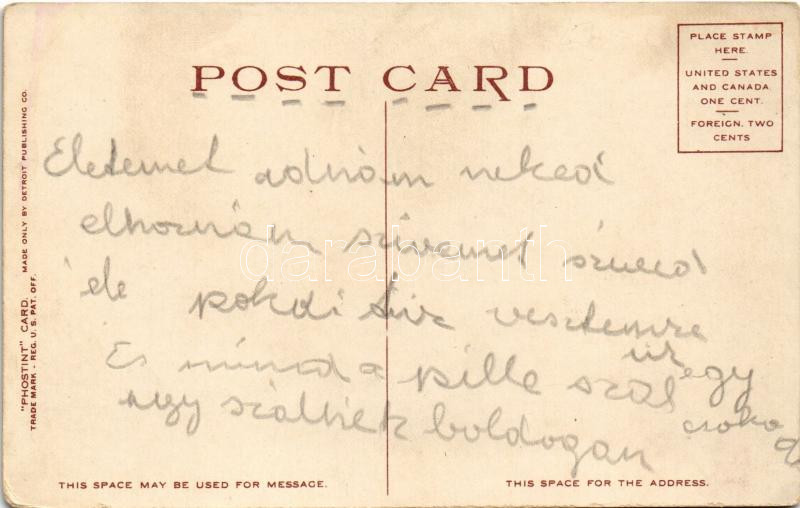 POST CARD
PLACE STAMP
HERE.
UNITED STATES
AND CANADA
ONE CENT.
FOREIGN, TWO
CENTS
"PHOSTINT" CARD.
MADE ONLY BY DETROIT PUBLISHING CO.
TRADE MARK - REG. U. S. PAT. OFF.
Eletemet adnám neked
elhoznám szivemet
de vesztemre
Es a pille szál egy
úgy boldogan
darabanth
THIS SPACE MAY BE USED FOR MESSAGE.
THIS SPACE FOR THE ADDRESS.